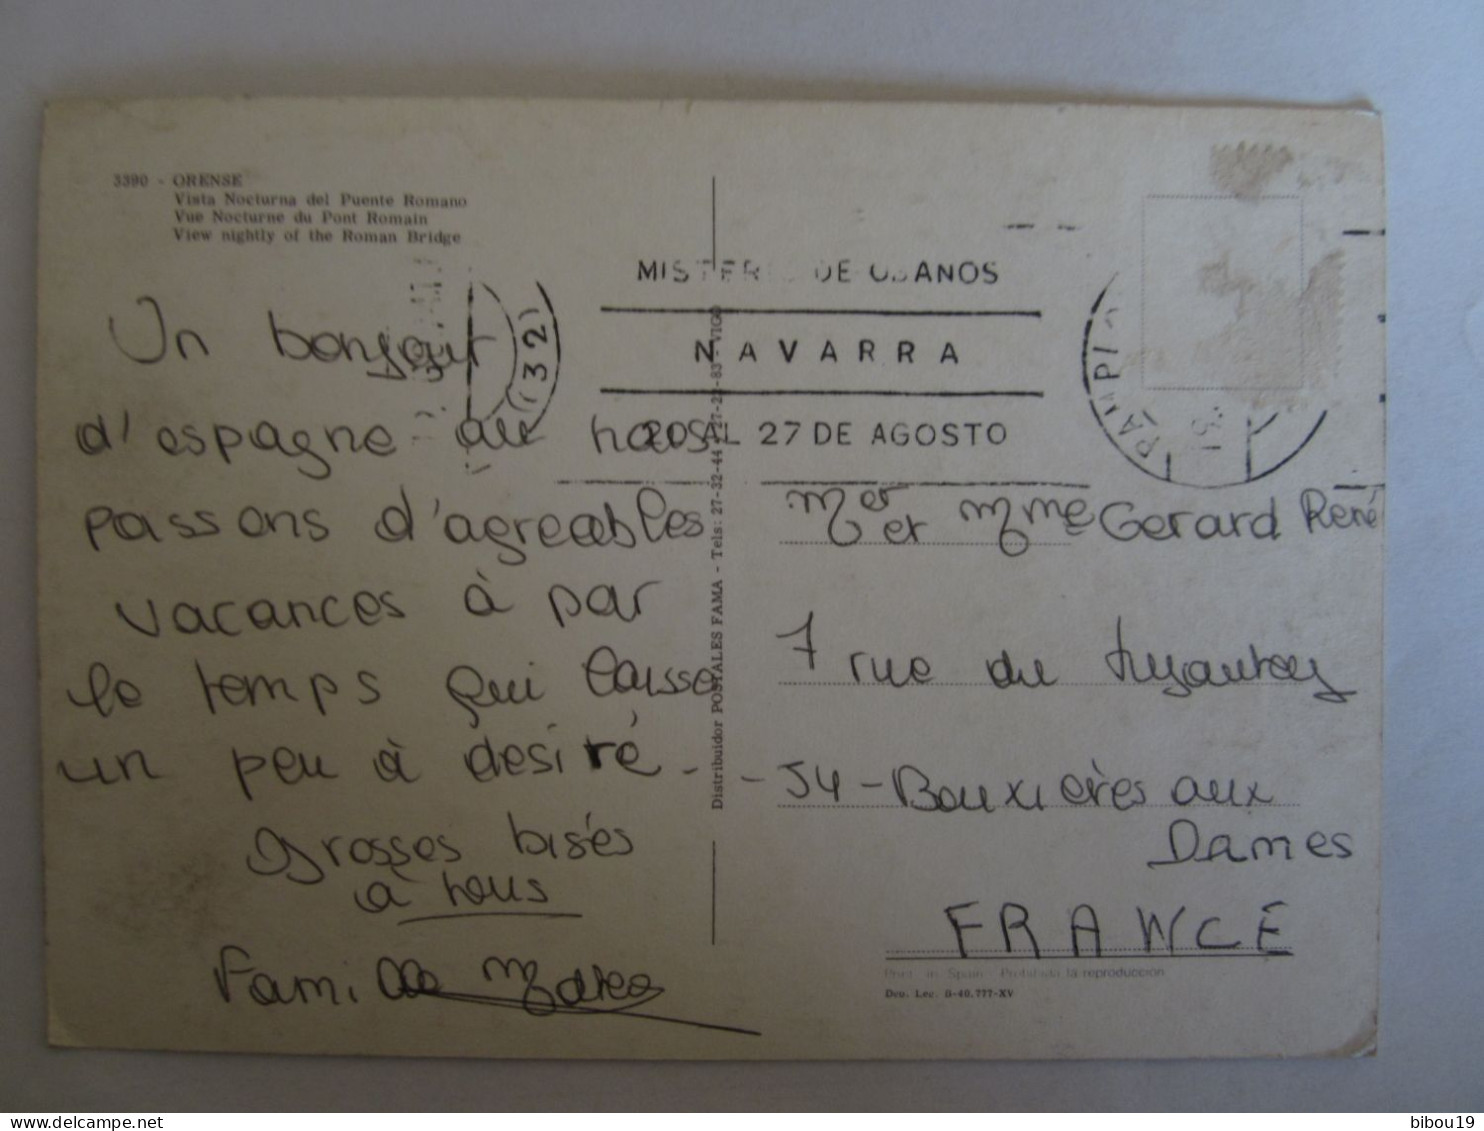 3390 - ORENSE
Vista Nocturna del Puente Romano
Vue Nocturne du Pont Romain
View nightly of the Roman Bridge
MISTERIO DE OBANOS
NAVARRA
20 AL 27 DE AGOSTO
(32)
Un bonjour
d'espagne au nous
passons d'agreables
vacances à par
le temps qui laisse
un peu à desiré -
Grosses bisés
à tous
Famille
Distribuidor POSTALES FAMA - Tels: 27-32-44 - 27-23-83 - VIGO
Mr et Mme Gerard René
7 rue du Lyautey
- 54 - Bouxières aux
Dames
FRANCE
Print. in Spain - Prohibida la reproducción
Dep. Lec. B-40.777-XV
bibou19